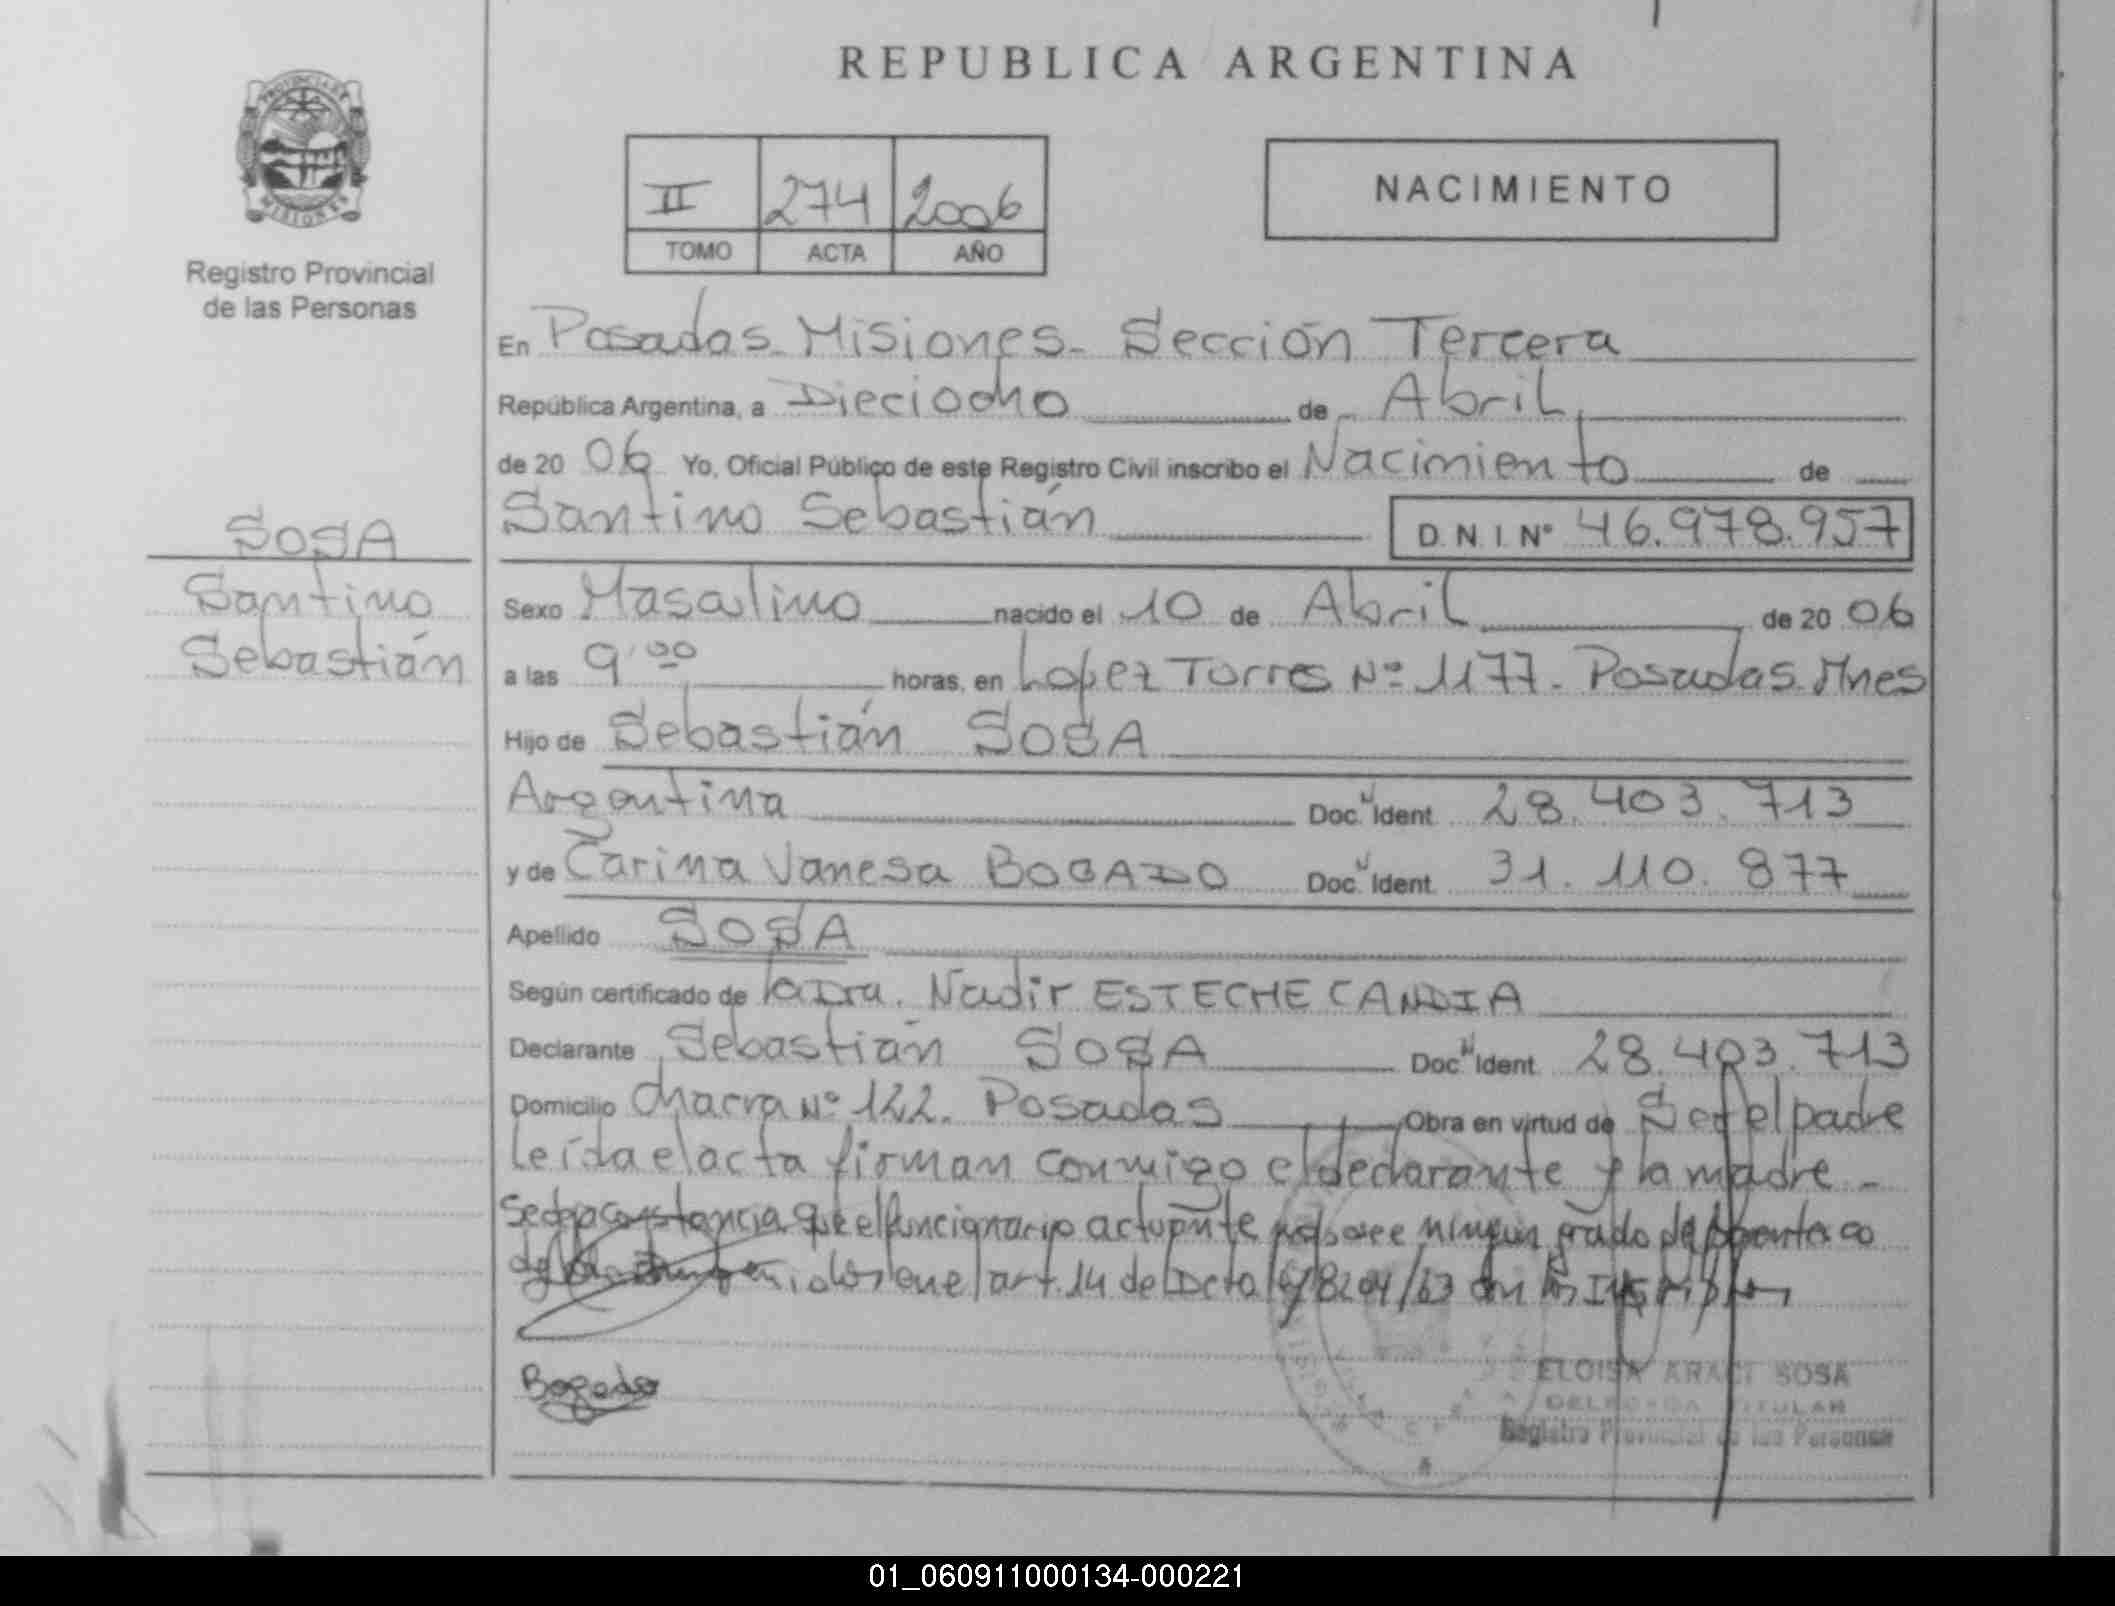 REPUBLICA ARGENTINA
PROVINCIA DE
MISIONES
Registro Provincial
de las Personas
II 274 2006
TOMO ACTA AÑO
NACIMIENTO
En Posadas. Misiones. Sección Tercera
República Argentina, a Dieciocho de Abril,
de 20 06 Yo, Oficial Público de este Registro Civil inscribo el Nacimiento de
Santino Sebastián D.N.I. Nº 46.978.957
SOSA
Santino
Sebastián
Sexo Masculino nacido el 10 de Abril de 20 06
a las 9,00 horas, en Lopez Torres Nº 1177. Posadas. Mnes
Hijo de Sebastián SOSA
Argentina Doc. Ident. 28.403.713
y de Carina Vanesa BOGADO Doc. Ident. 31.110.877
Apellido SOSA
Según certificado de la Dra. Nadir ESTECHE CANDIA
Declarante Sebastián SOSA Doc. Ident. 28.403.713
Domicilio Chacra Nº 122. Posadas Obra en virtud de Ser el padre
Leída el acta firman conmigo el declarante y la madre -
Se deja constancia que el funcionario actuante no posee ningun grado de
en el art. 14 del Dcto ley 8204/63 con los
Bogado
ELOISA ARACI SOSA
DELEGADA TITULAR
Registro Provincial de las Personas
01_060911000134-000221